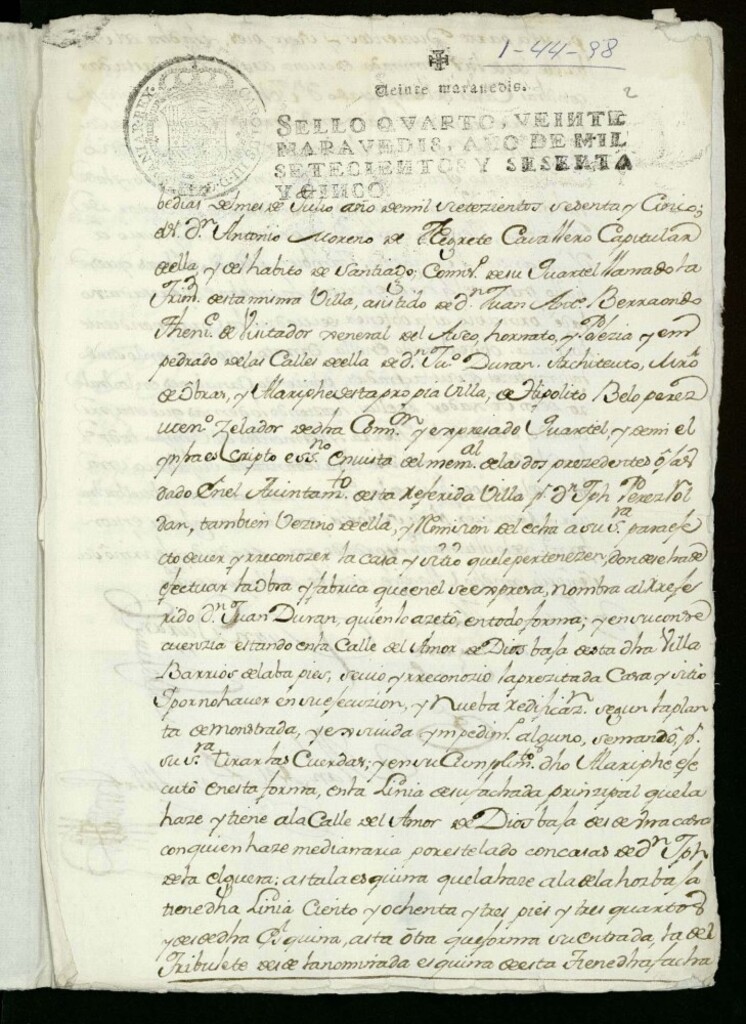 1-44-98
Veinte maravedis.
2
SELLO QVARTO, VEINTE
MARAVEDIS, AÑO DE MIL
SETECIENTOS Y SESENTA
Y CINCO
dias del mes de Julio año de mil setezientos sesenta y Cinco;
el S.r D.n Antonio Moreno de Negrete Cavallero Capitular
de ella, y del habito de Santiago; Comis.o de su Quartel llamado la
Trini.d de esta misma Villa, asistido de D.n Juan Ant.o Berraondo
Then.e de Visitador General del Aseo, hornato, y Polizia y em
pedrado de las Calles de ella de D.n Ju.o Duran. Architecto, Mro
de Obras, y Alariphe de esta propia Villa, de Hipolito Belo perez
Zelador de dha Com.on y expresado Quartel, y de mi el
ynfraescripto es.no En vista del mem.al de las dos prezedentes oJas
dado En el Aiuntam.to de esta Referida Villa p.r D.n Jph Perez Rol
dan, tambien Vezino de ella, y Remision del echa a su s.ra para efe
cto de ver y rreconozer la casa y sitio que le pertenezen, donde se ha de
efectuar la obra y fabrica que en el se expresa, nombra al Refe
rido D.n Juan Duran, quien lo azetô, en todo forma; y en su conse
cuenzia estando en la Calle del Amor de Dios baJa de esta dha Villa
Barrios de laba pies, se vio y rreconozio la prezitada Casa y sitio
Y por no haver en su efecuzion, y Nueba Redificaz.n segun la plan
ta demonstrada, y en vivida ympedim.to alguno, se mandô, p.r
su s.ra tirar las Cuerdas; y en su Cumplim.to dho Alariphe efe
cutô en esta forma, en la Linia de su fachada prinzipal que la
haze y tiene a la Calle del Amor de Dios baJa desde otra casa
con quien haze medianaria por este lado con casas de D.n Jph
de la elguera; asta la esquina que la haze a la de la hoz baJa
tiene dha Linia Ciento y ochenta y tres pies y tres quartos
y desde dha Esquina, asta otra que forma su entrada, la del
Tribulete desde la nominada esquina de esta tiene dha facha